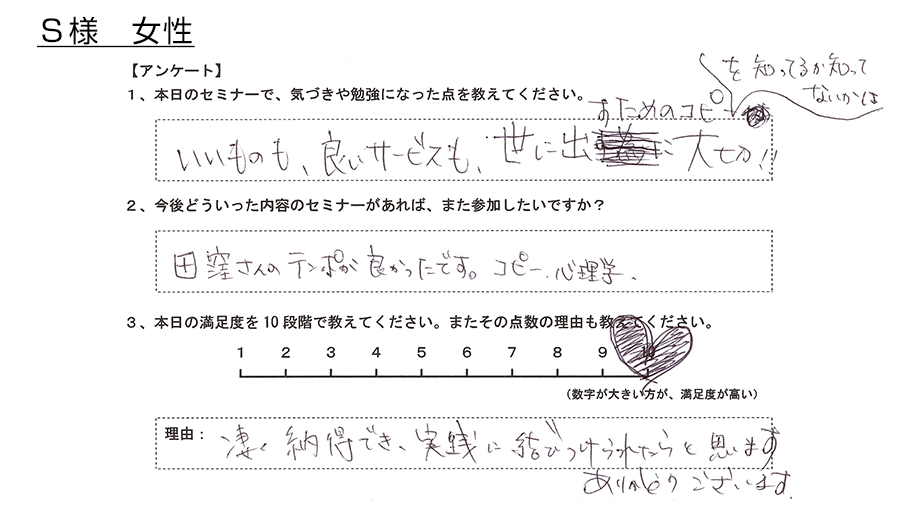 S様　女性
【アンケート】
1、本日のセミナーで、気づきや勉強になった点を教えてください。
いいものも、良いサービスも、世に出
すためのコピー
を知ってるか知って
ないかは
大切!!
2、今後どういった内容のセミナーがあれば、また参加したいですか？
田窪さんのテンポが良かったです。コピー、心理学、
3、本日の満足度を10段階で教えてください。またその点数の理由も教えてください。
1 2 3 4 5 6 7 8 9 10
（数字が大きい方が、満足度が高い）
理由：凄く納得でき、実践に結びつけられたらと思います
ありがとうございます。